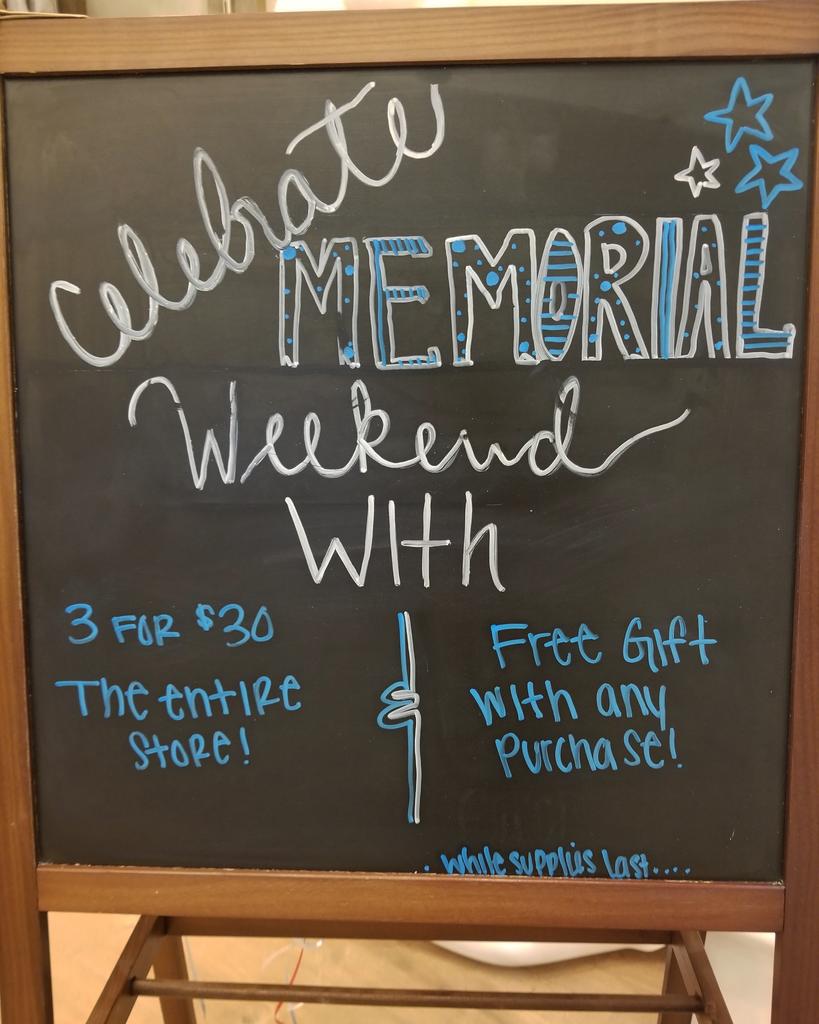 Celebrate
MEMORIAL
Weekend
With
3 FOR $30
The entire
Store!
&
Free Gift
with any
purchase!
. while supplies last....